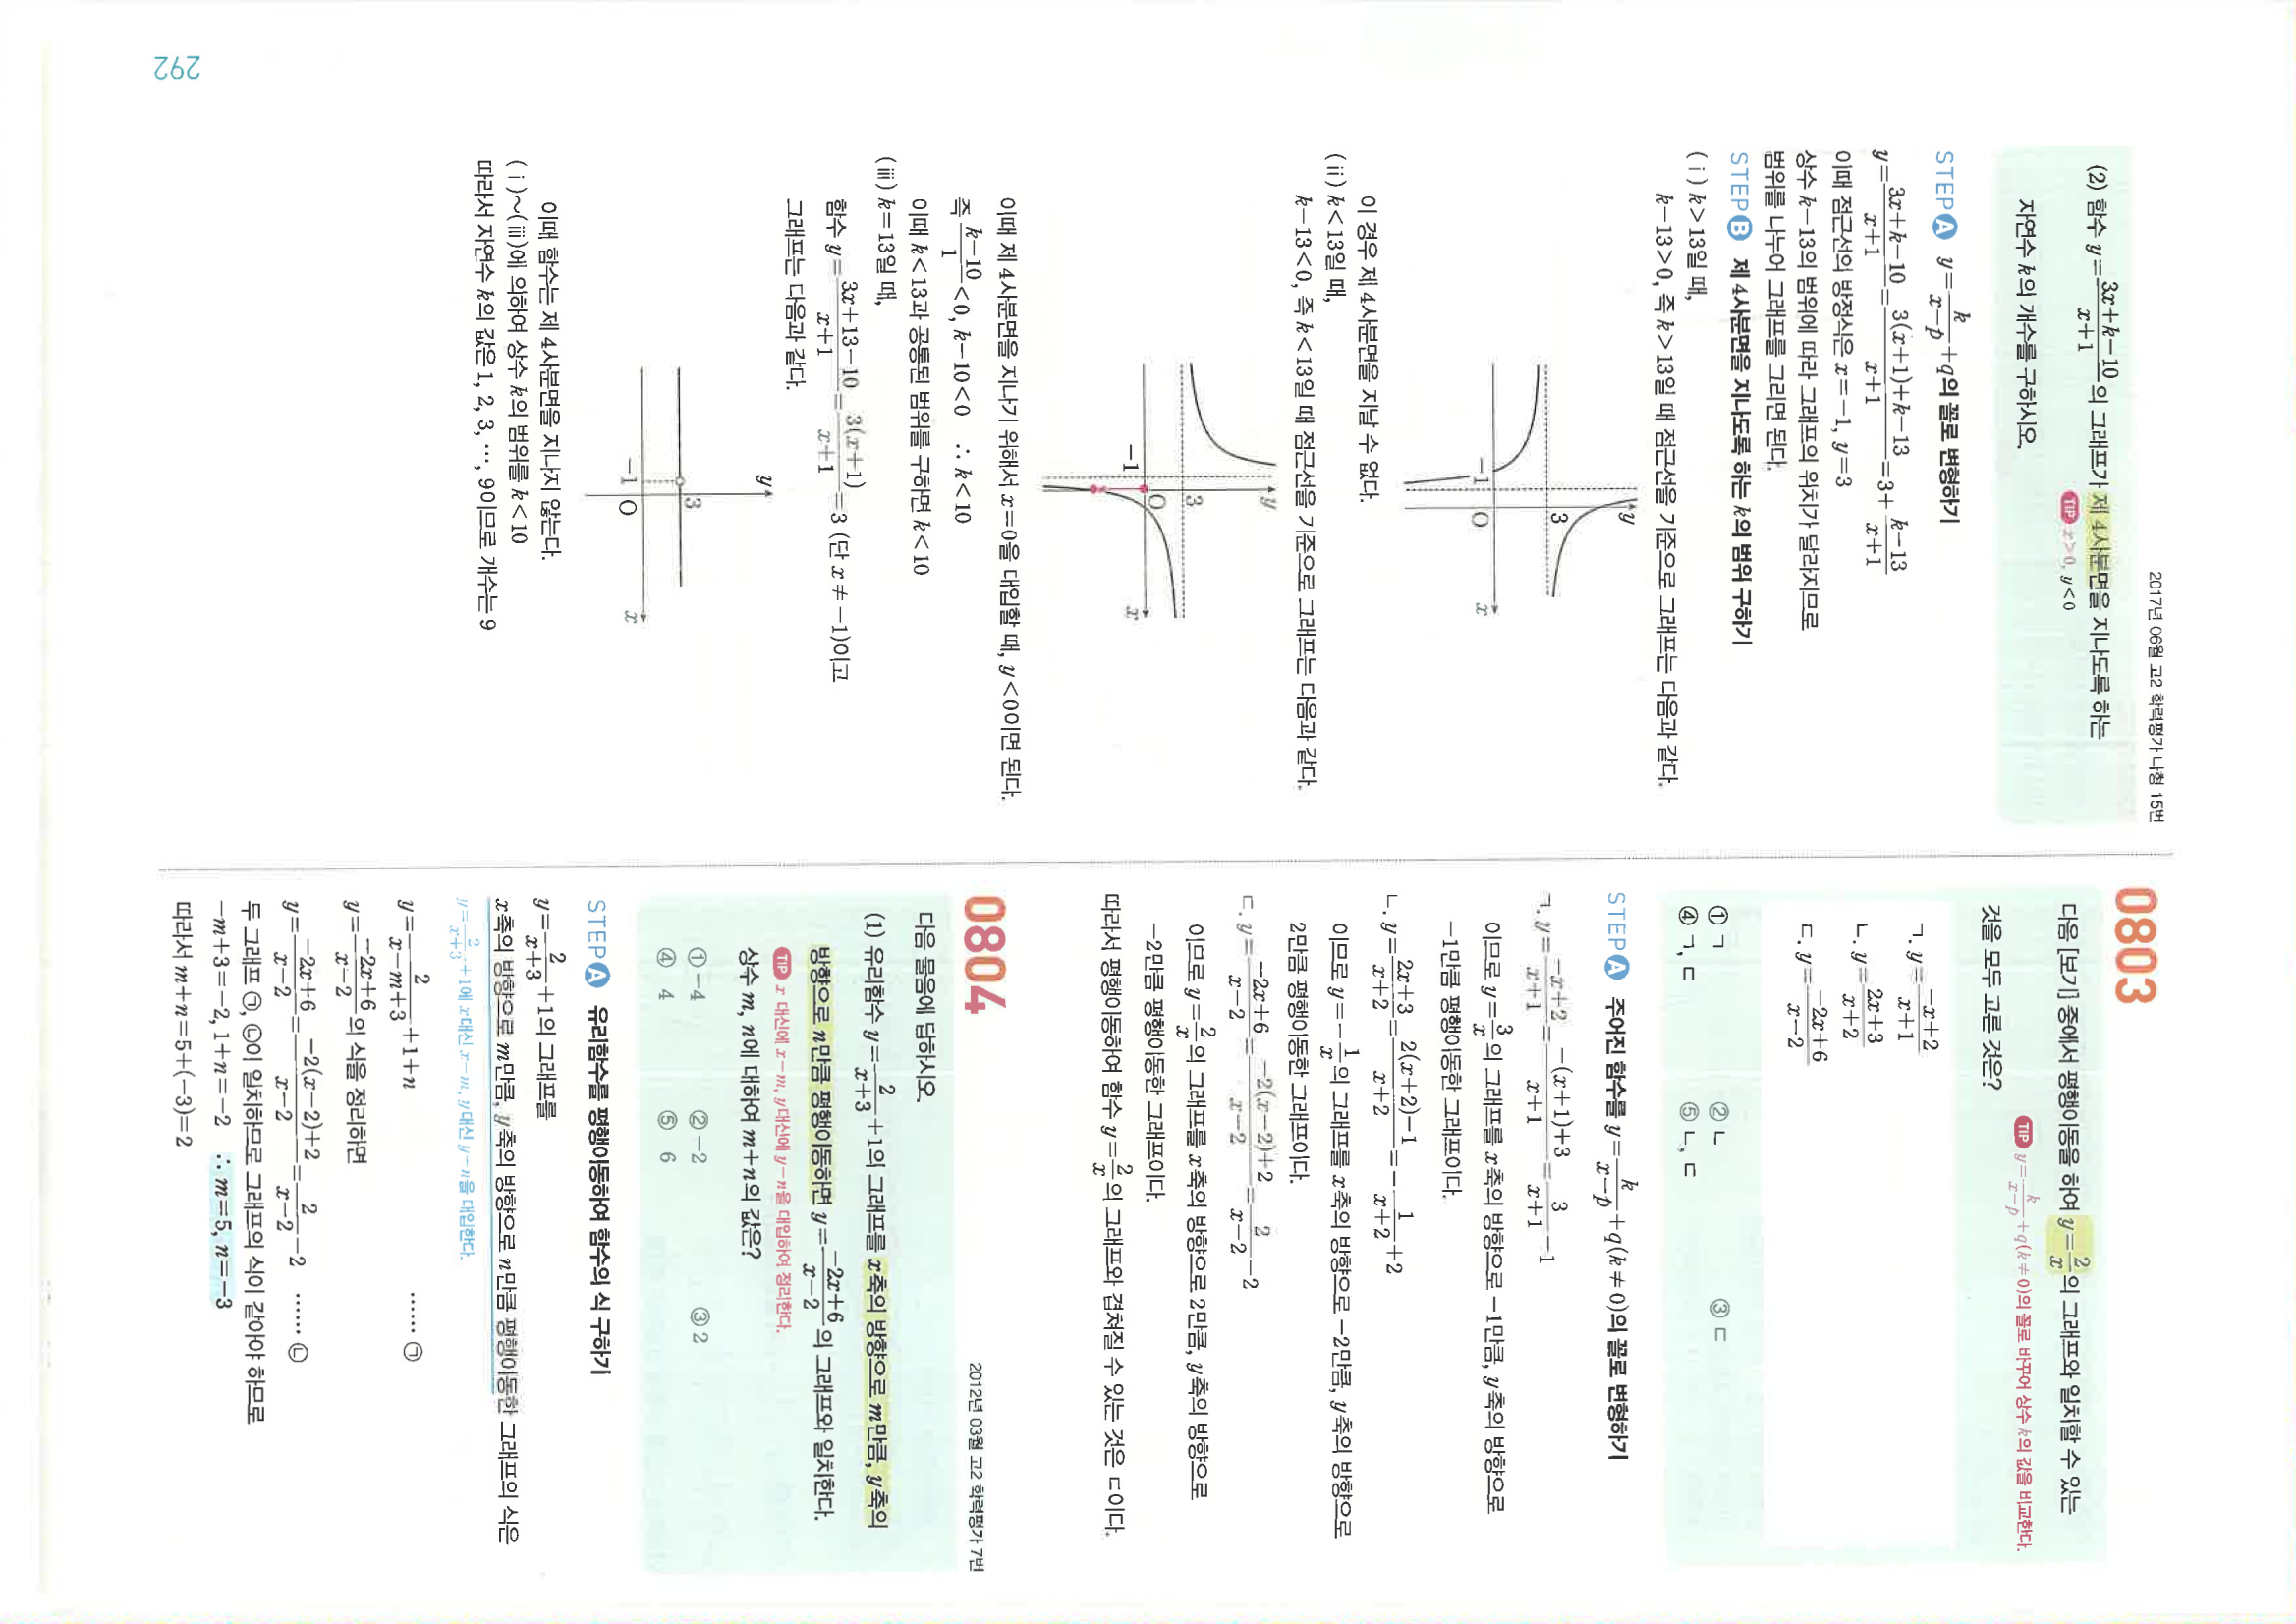 2017년 06월 고2 학력평가 나형 15번
(2) 함수 y=\frac{3x+k-10}{x+1}의 그래프가 제 4사분면을 지나도록 하는
TIP x>0, y<0
자연수 k의 개수를 구하시오.
STEP A y=\frac{k}{x-p}+q의 꼴로 변형하기
y=\frac{3x+k-10}{x+1}=\frac{3(x+1)+k-13}{x+1}=3+\frac{k-13}{x+1}
이때 점근선의 방정식은 x=-1, y=3
상수 k-13의 범위에 따라 그래프의 위치가 달라지므로
범위를 나누어 그래프를 그리면 된다.
STEP B 제 4사분면을 지나도록 하는 k의 범위 구하기
(ⅰ) k>13일 때,
k-13>0, 즉 k>13일 때 점근선을 기준으로 그래프는 다음과 같다.
y
3
-1
O
x
이 경우 제 4사분면을 지날 수 없다.
(ⅱ) k<13일 때,
k-13<0, 즉 k<13일 때 점근선을 기준으로 그래프는 다음과 같다.
y
3
-1
O
x
이때 제 4사분면을 지나기 위해서 x=0을 대입할 때, y<0이면 된다.
즉 \frac{k-10}{1}<0, k-10<0 ∴ k<10
이때 k<13과 공통된 범위를 구하면 k<10
(ⅲ) k=13일 때,
함수 y=\frac{3x+13-10}{x+1}=\frac{3(x+1)}{x+1}=3 (단 x≠-1)이고
그래프는 다음과 같다.
y
3
-1
O
x
이때 함수는 제 4사분면을 지나지 않는다.
(ⅰ)~(ⅲ)에 의하여 상수 k의 범위를 k<10
따라서 자연수 k의 값은 1, 2, 3, …, 9이므로 개수는 9
0803
다음 [보기] 중에서 평행이동을 하여 y=\frac{2}{x}의 그래프와 일치할 수 있는
TIP y=\frac{k}{x-p}+q(k≠0)의 꼴로 바꾸어 상수 k의 값을 비교한다.
것을 모두 고른 것은?
ㄱ. y=\frac{-x+2}{x+1}
ㄴ. y=\frac{2x+3}{x+2}
ㄷ. y=\frac{-2x+6}{x-2}
① ㄱ ② ㄴ ③ ㄷ
④ ㄱ, ㄷ ⑤ ㄴ, ㄷ
STEP A 주어진 함수를 y=\frac{k}{x-p}+q(k≠0)의 꼴로 변형하기
ㄱ. y=\frac{-x+2}{x+1}=\frac{-(x+1)+3}{x+1}=\frac{3}{x+1}-1
이므로 y=\frac{3}{x}의 그래프를 x축의 방향으로 -1만큼, y축의 방향으로
-1만큼 평행이동한 그래프이다.
ㄴ. y=\frac{2x+3}{x+2}=\frac{2(x+2)-1}{x+2}=-\frac{1}{x+2}+2
이므로 y=-\frac{1}{x}의 그래프를 x축의 방향으로 -2만큼, y축의 방향으로
2만큼 평행이동한 그래프이다.
ㄷ. y=\frac{-2x+6}{x-2}=\frac{-2(x-2)+2}{x-2}=\frac{2}{x-2}-2
이므로 y=\frac{2}{x}의 그래프를 x축의 방향으로 2만큼, y축의 방향으로
-2만큼 평행이동한 그래프이다.
따라서 평행이동하여 함수 y=\frac{2}{x}의 그래프와 겹쳐질 수 있는 것은 ㄷ이다.
0804
2012년 03월 고2 학력평가 7번
다음 물음에 답하시오.
(1) 유리함수 y=\frac{2}{x+3}+1의 그래프를 x축의 방향으로 m만큼, y축의
방향으로 n만큼 평행이동하면 y=\frac{-2x+6}{x-2}의 그래프와 일치한다.
TIP x 대신에 x-m, y대신에 y-n을 대입하여 정리한다.
상수 m, n에 대하여 m+n의 값은?
① -4 ② -2 ③ 2
④ 4 ⑤ 6
STEP A 유리함수를 평행이동하여 함수의 식 구하기
y=\frac{2}{x+3}+1의 그래프를
x축의 방향으로 m만큼, y축의 방향으로 n만큼 평행이동한 그래프의 식은
y=\frac{2}{x+3}+1에 x대신 x-m, y대신 y-n을 대입한다.
y=\frac{2}{x-m+3}+1+n …… ㉠
y=\frac{-2x+6}{x-2}의 식을 정리하면
y=\frac{-2x+6}{x-2}=\frac{-2(x-2)+2}{x-2}=\frac{2}{x-2}-2 …… ㉡
두 그래프 ㉠, ㉡이 일치하므로 그래프의 식이 같아야 하므로
-m+3=-2, 1+n=-2 ∴ m=5, n=-3
따라서 m+n=5+(-3)=2
292